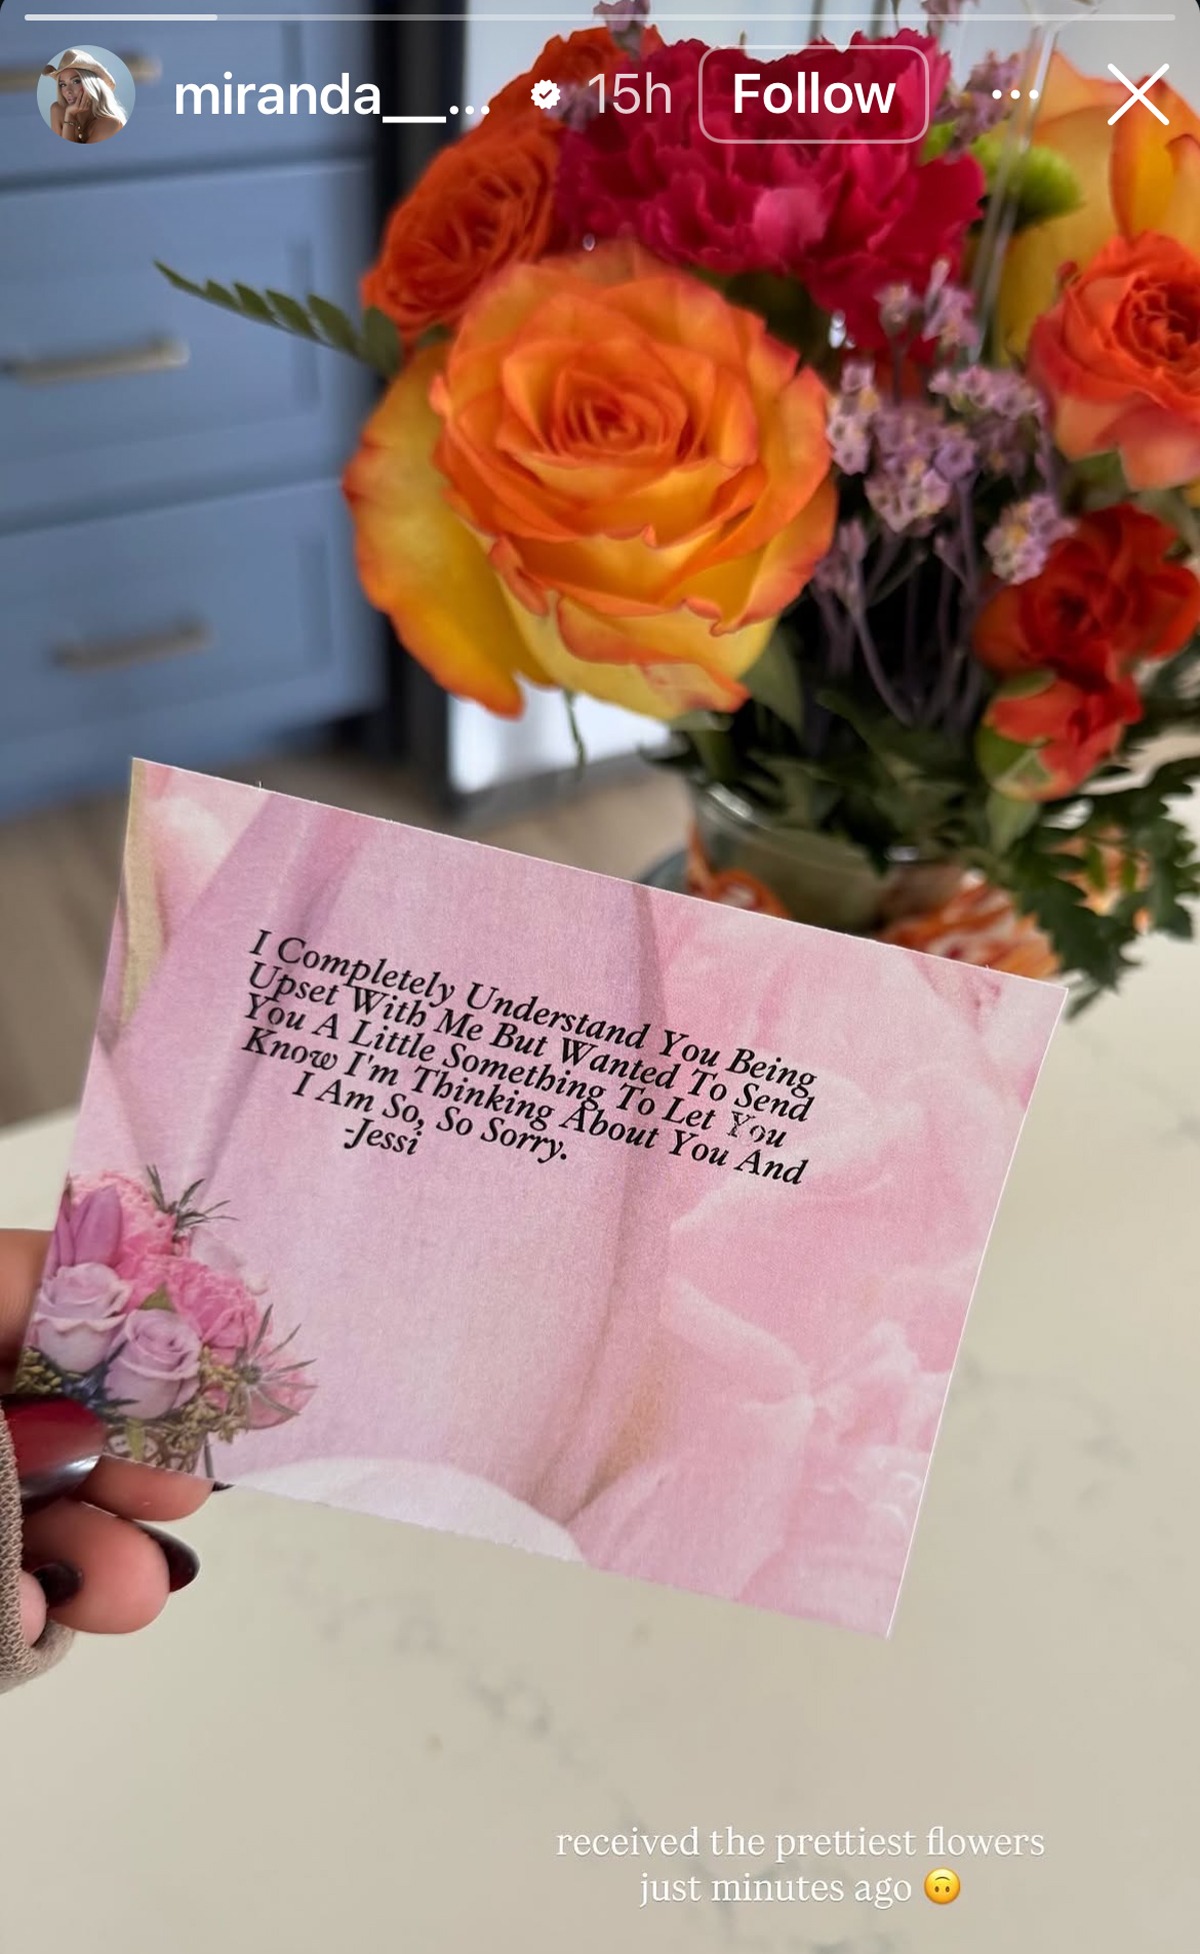 miranda__... 15h Follow
I Completely Understand You Being
Upset With Me But Wanted To Send
You A Little Something To Let You
Know I'm Thinking About You And
I Am So, So Sorry.
-Jessi
received the prettiest flowers
just minutes ago 🙃